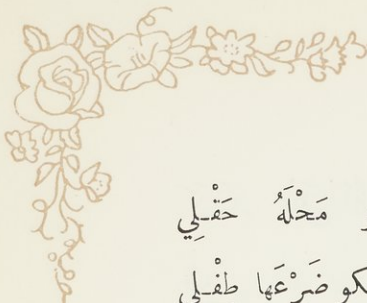 مَحْلَهُ حَقْلِي
ضَرْعَها طِفْلِي